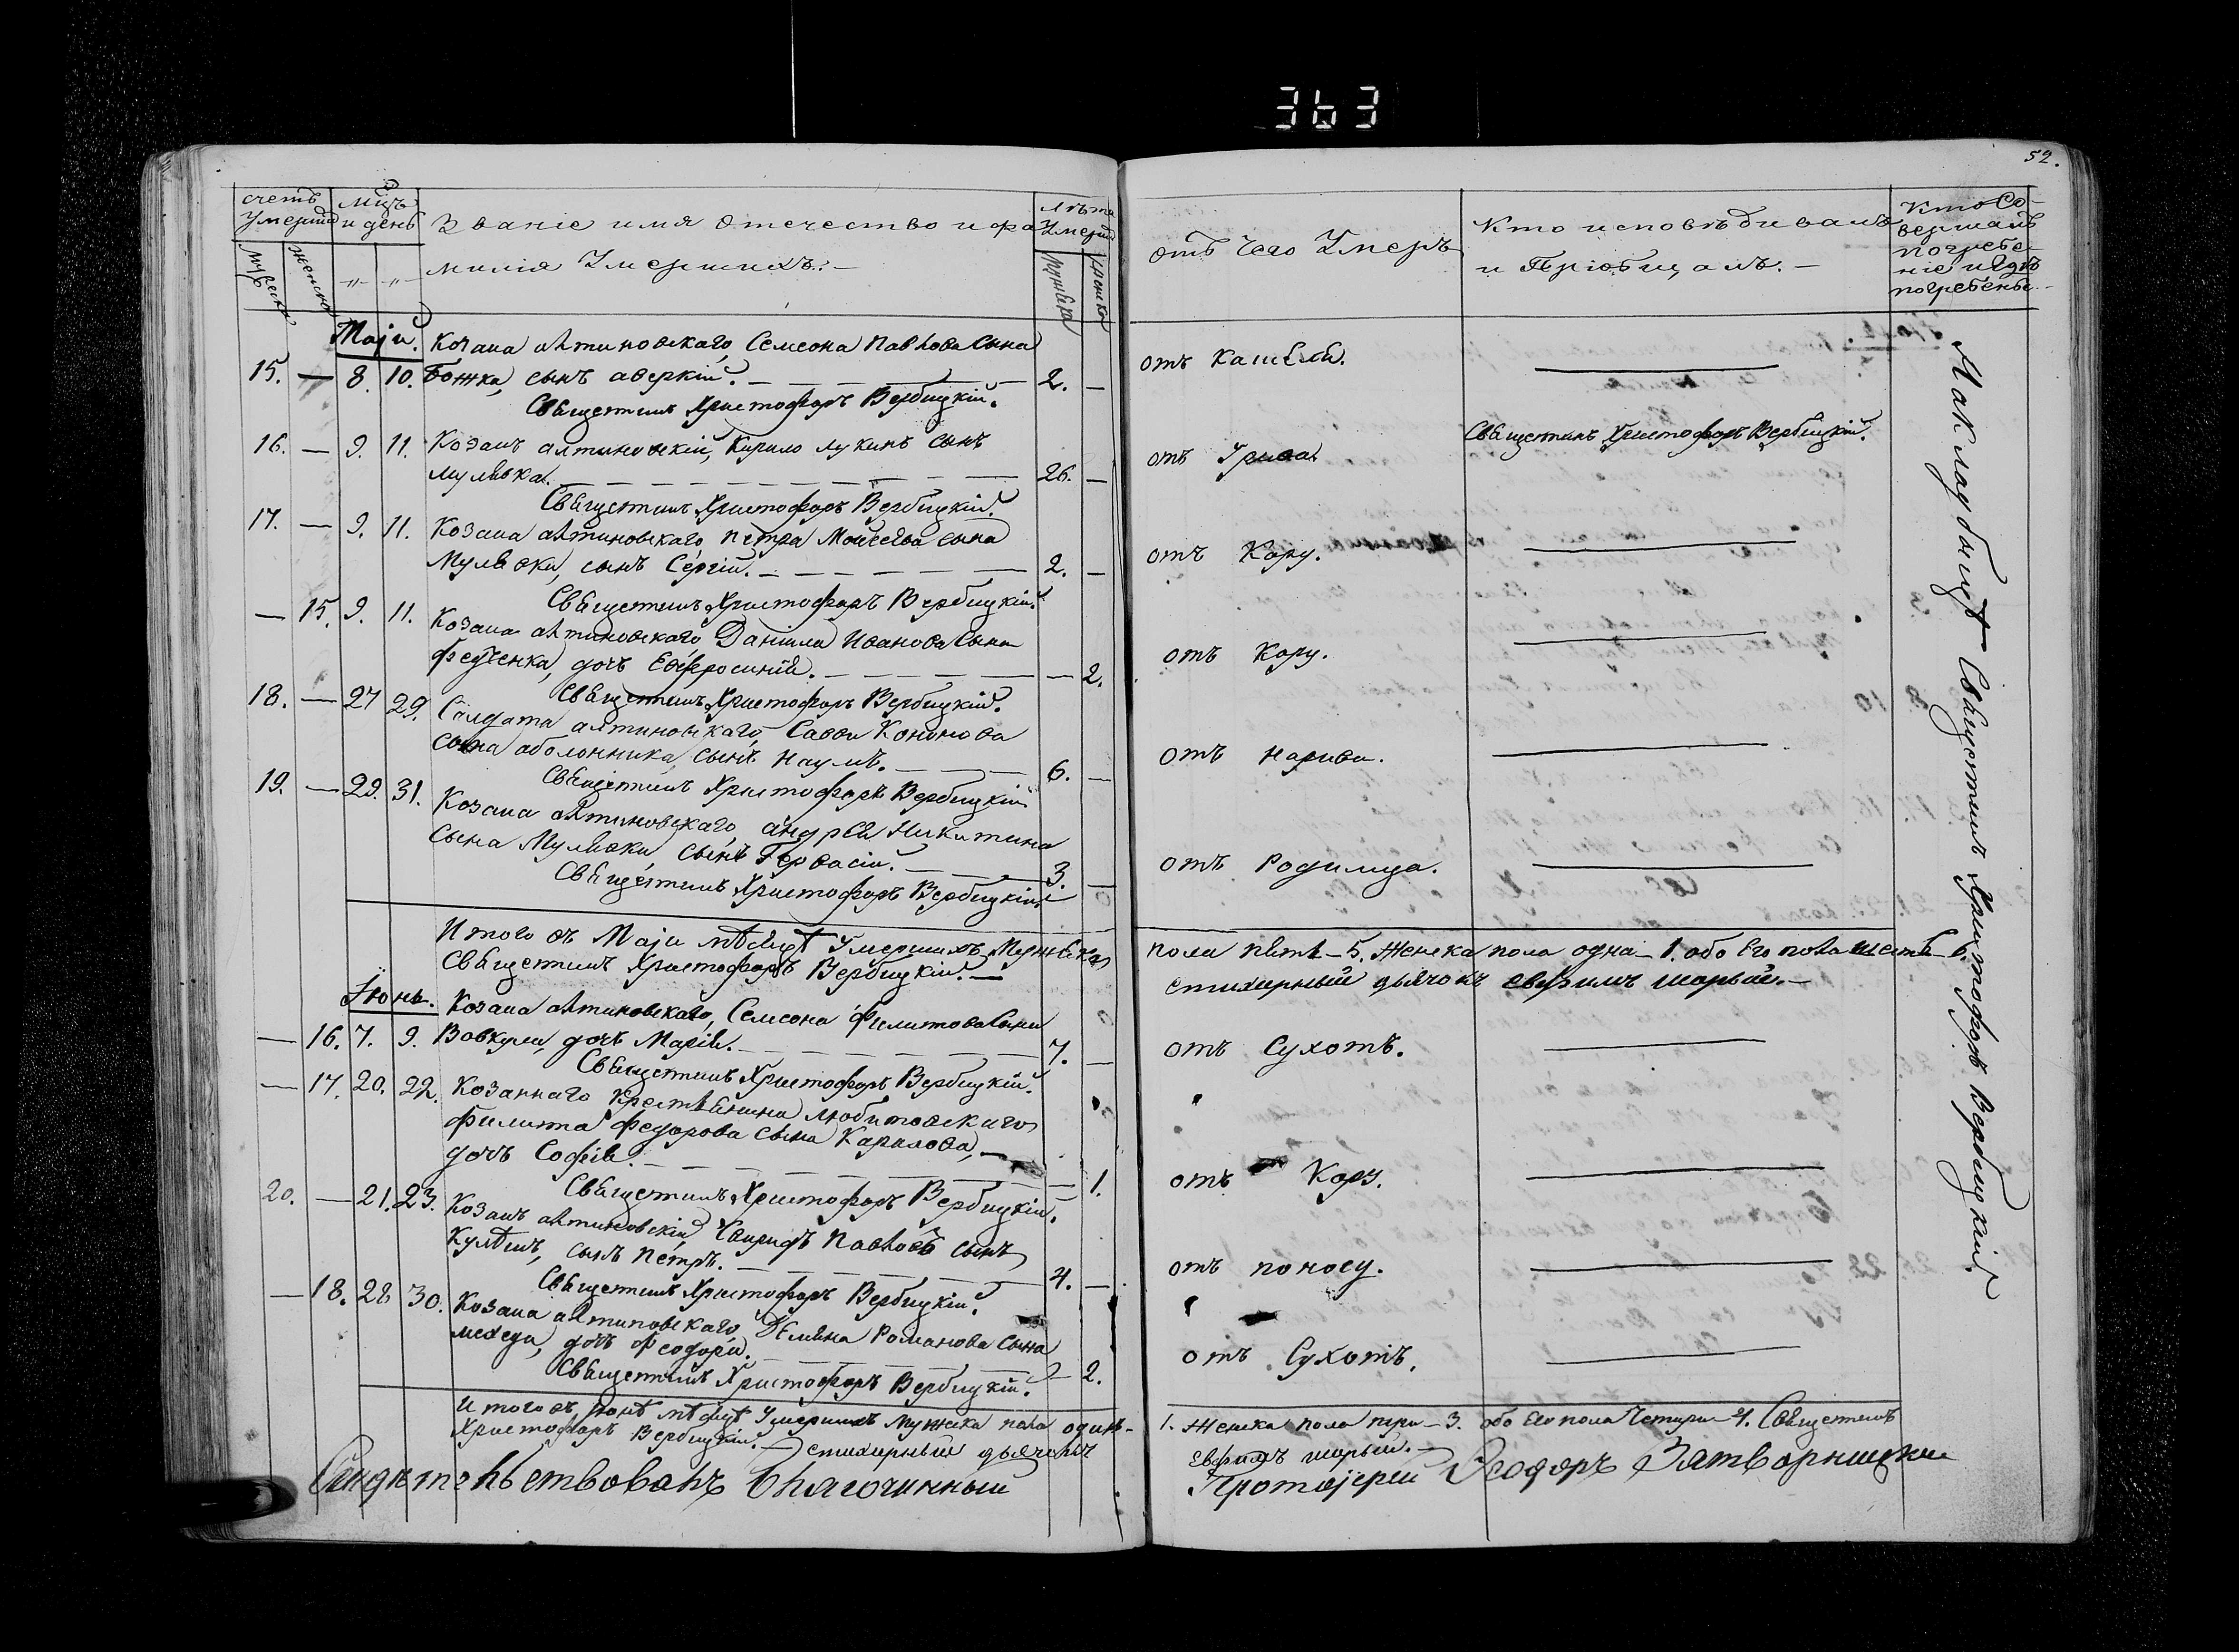 363
52.
счетъ Умершихъ
мцъ и день
Званіе имя отечество и фа
милія Умершихъ. —
лѣта Умершихъ
мужеска
женска
мужеска
женска
отъ чего Умеръ
Кто исповѣдивалъ
и Пріобщалъ. —
Кто Со-
вершалъ
погребе
ніе и Гдѣ
погребены.
Маіи. Козака алтиновскаго, Семсона Павлова Сына
15. — 8. 10. Божка, сынъ аверкій. — 2. — отъ Кашеля.
Священникъ Христофоръ Вербицкій.
16. — 9. 11. Козакъ алтиновскій, Кирило лукинъ сынъ
мулявка. — 26. — отъ Священникъ Христофоръ Вербицкій.
Священникъ Христофоръ Вербицкій.
17. — 9. 11. Козака алтиновскаго, петра Моисеева сына
Мулявки, сынъ Сергій. — 2. — отъ Кору.
Священникъ Христофоръ Вербицкій.
— 15. 9. 11. Козака алтиновскаго Даніила Иванова Сына
федченка, дочь Евфросинія. — 2. отъ Кору.
Священникъ Христофоръ Вербицкій.
18. — 27 29. Салдата алтиновскаго, Савви Кононова
сына оболонника, сынъ наумъ. — 6. — отъ нарива.
Священникъ Христофоръ Вербицкій
19. — 29. 31. Козака алтиновскаго, андрея Никитина
сына Мулявки, сынъ Гервасій. — 3. — отъ Родимца.
Священникъ Христофоръ Вербицкій
Итого въ Маіи мѣсяцѣ Умершихъ Мужеска пола пять — 5. Женска пола одна — 1. обо Его пола шесть — 6.
Священникъ Христофоръ Вербицкій. — стихирный дьячокъ
Іюнь. Козака алтиновскаго, Семсона Филипова Сына
— 16. 7. 9. Вовкули, дочь Марія. — 7. — отъ Сухотъ.
Священникъ Христофоръ Вербицкій.
— 17. 20. 22. Козаннаго крестянина любитовскаго
филиппа федорова сына Карпова, —
дочь Софія. — 1. отъ Кору.
Священникъ Христофоръ Вербицкій.
20. — 21. 23. Козакъ алтиновскій, Свиридъ Павловъ сынъ
Кулѣшъ, сынъ Петръ. — 4. — отъ поносу.
Священникъ Христофоръ Вербицкій.
— 18. 28 30. Козака алтиновскаго, Демяна Романова Сына
мехеди, дочь Феодора. — 2. отъ Сухотъ.
Священникъ Христофоръ Вербицкій.
Итого въ Іюнѣ мѣсяцѣ Умершихъ Мужеска пола одинъ — 1. Женска пола три — 3. обо Его пола Четыри 4. Священникъ
Христофоръ Вербицкій. — стихирный дьячокъ
Свидѣтельствовалъ Благочинный Протоіерей Феодоръ Затворницкій
На кладбищѣ Священникъ Христофоръ Вербицкій.